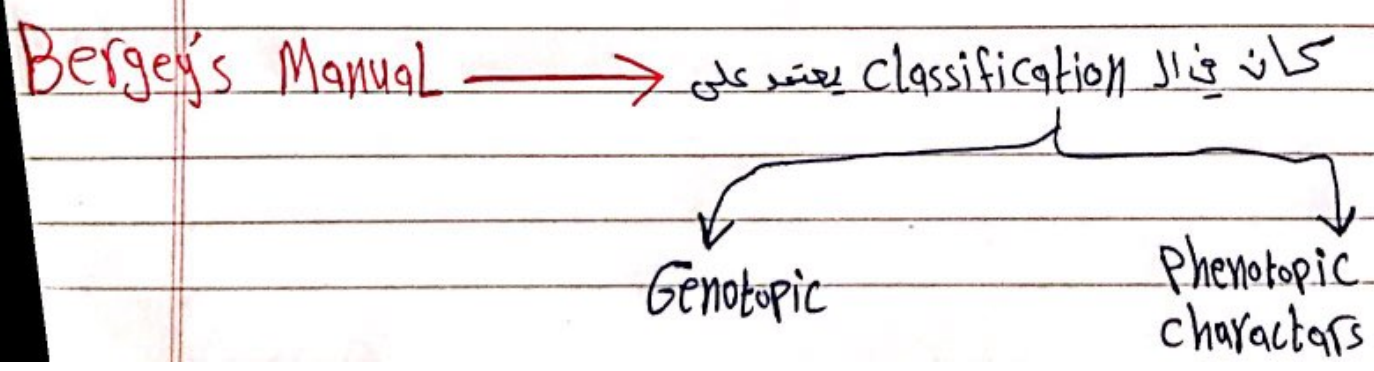 Bergey's Manual → كان في ال classification يعتمد على
Genotopic
Phenotopic
charactars